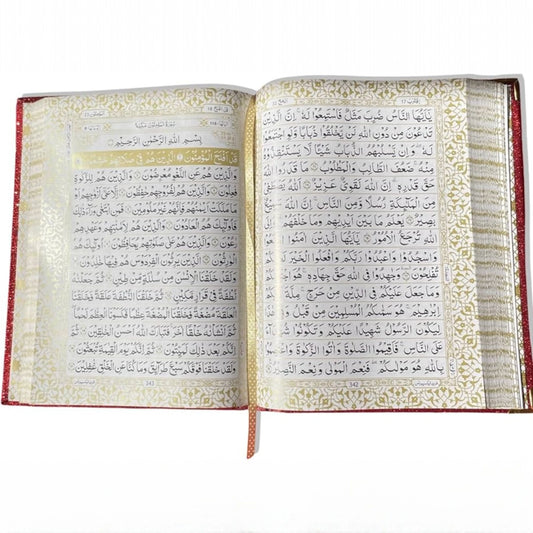 الحج ٢٢
اقترب ١٧
يٰۤاَيُّهَا النَّاسُ ضُرِبَ مَثَلٌ فَاسْتَمِعُوْا لَهٗ ؕ اِنَّ الَّذِيْنَ
تَدْعُوْنَ مِنْ دُوْنِ اللّٰهِ لَنْ يَّخْلُقُوْا ذُبَابًا وَّلَوِ اجْتَمَعُوْا
لَهٗ ؕ وَاِنْ يَّسْلُبْهُمُ الذُّبَابُ شَيْـًٔا لَّا يَسْتَنْقِذُوْهُ
مِنْهُ ؕ ضَعُفَ الطَّالِبُ وَالْمَطْلُوْبُ ۝ مَا قَدَرُوا اللّٰهَ
حَقَّ قَدْرِهٖ ؕ اِنَّ اللّٰهَ لَقَوِيٌّ عَزِيْزٌ ۝ اَللّٰهُ يَصْطَفِيْ
مِنَ الْمَلٰٓئِكَةِ رُسُلًا وَّمِنَ النَّاسِ ؕ اِنَّ اللّٰهَ سَمِيْعٌۢ
بَصِيْرٌ ۝ يَعْلَمُ مَا بَيْنَ اَيْدِيْهِمْ وَمَا خَلْفَهُمْ ؕ وَاِلَى
اللّٰهِ تُرْجَعُ الْاُمُوْرُ ۝ يٰۤاَيُّهَا الَّذِيْنَ اٰمَنُوا ارْكَعُوْا
وَاسْجُدُوْا وَاعْبُدُوْا رَبَّكُمْ وَافْعَلُوا الْخَيْرَ لَعَلَّكُمْ
تُفْلِحُوْنَ ۝ وَجَاهِدُوْا فِي اللّٰهِ حَقَّ جِهَادِهٖ ؕ هُوَ اجْتَبٰىكُمْ
وَمَا جَعَلَ عَلَيْكُمْ فِي الدِّيْنِ مِنْ حَرَجٍ ؕ مِلَّةَ اَبِيْكُمْ
اِبْرٰهِيْمَ ؕ هُوَ سَمّٰىكُمُ الْمُسْلِمِيْنَ مِنْ قَبْلُ وَفِيْ هٰذَا
لِيَكُوْنَ الرَّسُوْلُ شَهِيْدًا عَلَيْكُمْ وَتَكُوْنُوْا شُهَدَآءَ
عَلَى النَّاسِ ۚ فَاَقِيْمُوا الصَّلٰوةَ وَاٰتُوا الزَّكٰوةَ وَاعْتَصِمُوْا
بِاللّٰهِ ؕ هُوَ مَوْلٰىكُمْ ۚ فَنِعْمَ الْمَوْلٰى وَنِعْمَ النَّصِيْرُ ۝
342
قد افلح ١٨
المؤمنون ٢٣
سُوْرَةُ الْمُؤْمِنُوْنَ مَكِّيَّةٌ
بِسْمِ اللّٰهِ الرَّحْمٰنِ الرَّحِيْمِ
قَدْ اَفْلَحَ الْمُؤْمِنُوْنَ ۝ الَّذِيْنَ هُمْ فِيْ صَلَاتِهِمْ خٰشِعُوْنَ
وَالَّذِيْنَ هُمْ عَنِ اللَّغْوِ مُعْرِضُوْنَ ۝ وَالَّذِيْنَ هُمْ لِلزَّكٰوةِ
فٰعِلُوْنَ ۝ وَالَّذِيْنَ هُمْ لِفُرُوْجِهِمْ حٰفِظُوْنَ ۝ اِلَّا عَلٰٓى اَزْوَاجِهِمْ اَوْ
مَا مَلَكَتْ اَيْمَانُهُمْ فَاِنَّهُمْ غَيْرُ مَلُوْمِيْنَ ۝ فَمَنِ ابْتَغٰى وَرَآءَ ذٰلِكَ
فَاُولٰٓئِكَ هُمُ الْعٰدُوْنَ ۝ وَالَّذِيْنَ هُمْ لِاَمٰنٰتِهِمْ وَعَهْدِهِمْ
رٰعُوْنَ ۝ وَالَّذِيْنَ هُمْ عَلٰى صَلَوٰتِهِمْ يُحَافِظُوْنَ ۝ اُولٰٓئِكَ هُمُ
الْوٰرِثُوْنَ ۝ الَّذِيْنَ يَرِثُوْنَ الْفِرْدَوْسَ ؕ هُمْ فِيْهَا خٰلِدُوْنَ ۝
وَلَقَدْ خَلَقْنَا الْاِنْسَانَ مِنْ سُلٰلَةٍ مِّنْ طِيْنٍ ۝ ثُمَّ جَعَلْنٰهُ
نُطْفَةً فِيْ قَرَارٍ مَّكِيْنٍ ۝ ثُمَّ خَلَقْنَا النُّطْفَةَ عَلَقَةً فَخَلَقْنَا
الْعَلَقَةَ مُضْغَةً فَخَلَقْنَا الْمُضْغَةَ عِظٰمًا فَكَسَوْنَا الْعِظٰمَ لَحْمًا
ثُمَّ اَنْشَاْنٰهُ خَلْقًا اٰخَرَ ؕ فَتَبٰرَكَ اللّٰهُ اَحْسَنُ الْخٰلِقِيْنَ ۝ ثُمَّ
اِنَّكُمْ بَعْدَ ذٰلِكَ لَمَيِّتُوْنَ ۝ ثُمَّ اِنَّكُمْ يَوْمَ الْقِيٰمَةِ تُبْعَثُوْنَ ۝
وَلَقَدْ خَلَقْنَا فَوْقَكُمْ سَبْعَ طَرَآئِقَ ۖ وَمَا كُنَّا عَنِ الْخَلْقِ غٰفِلِيْنَ ۝
343